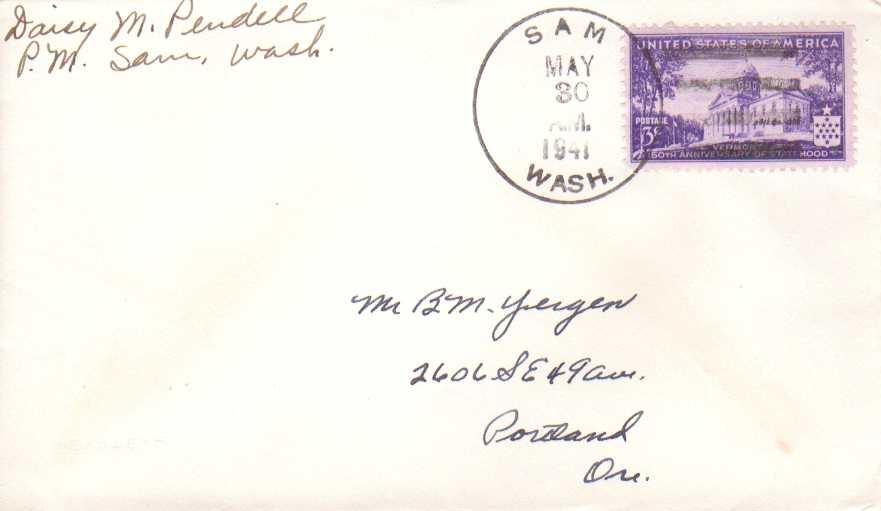 Daisy M. Pendell
P.M. Sam, Wash.
SAM
MAY
30
A.M.
1941
WASH.
UNITED STATES OF AMERICA
POSTAGE
3¢
VERMONT
150TH ANNIVERSARY OF STATEHOOD
Mr B.M. Yergen
2606 SE 49 ave.
Portland
Ore.